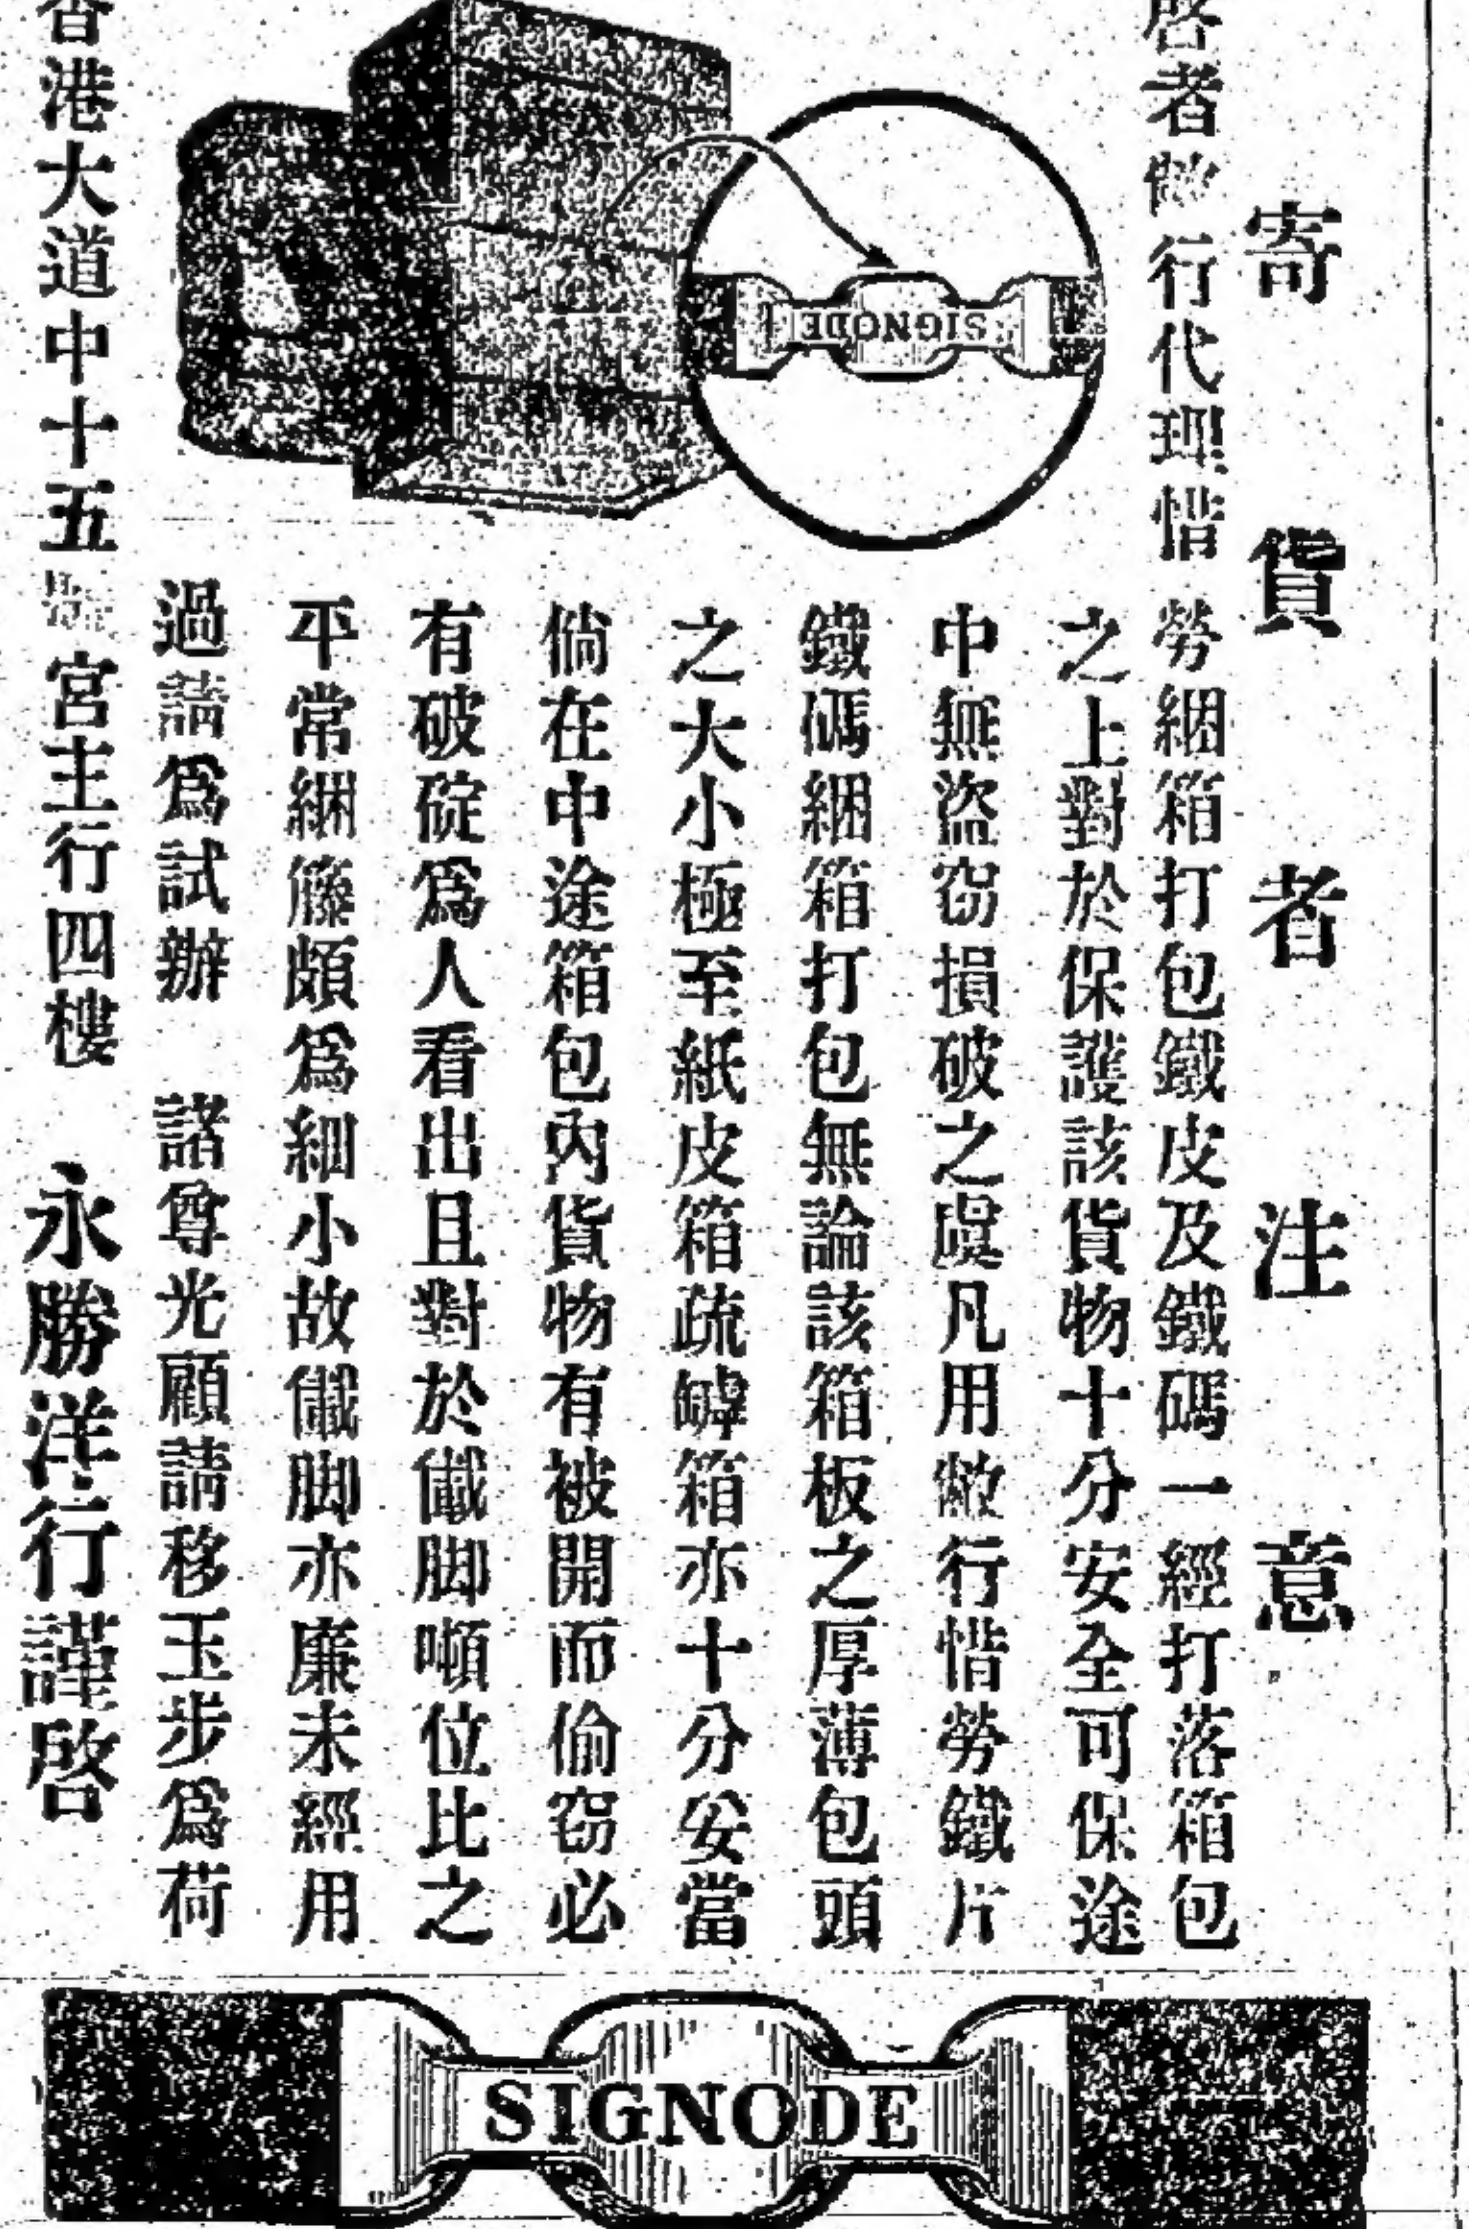 寄貨者注意
啓者敝行代理惜勞綑箱打包鐵皮及鐵碼一經打落箱包
之上對於保護該貨物十分安全可保途
中無盜窃損破之虞凡用敝行惜勞鐵片
鐵碼綑箱打包無論該箱板之厚薄包頭
之大小極至紙皮箱疏罅箱亦十分妥當
倘在中途箱包內貨物有被開而偷窃必
有破碇爲人看出且對於儎脚噸位比之
平常綑籐頗爲細小故儎脚亦廉未經用
過請爲試辦 諸尊光顧請移玉步爲荷
香港大道中十五號宮主行四樓 永勝洋行謹啓
SIGNODE
SIGNODE